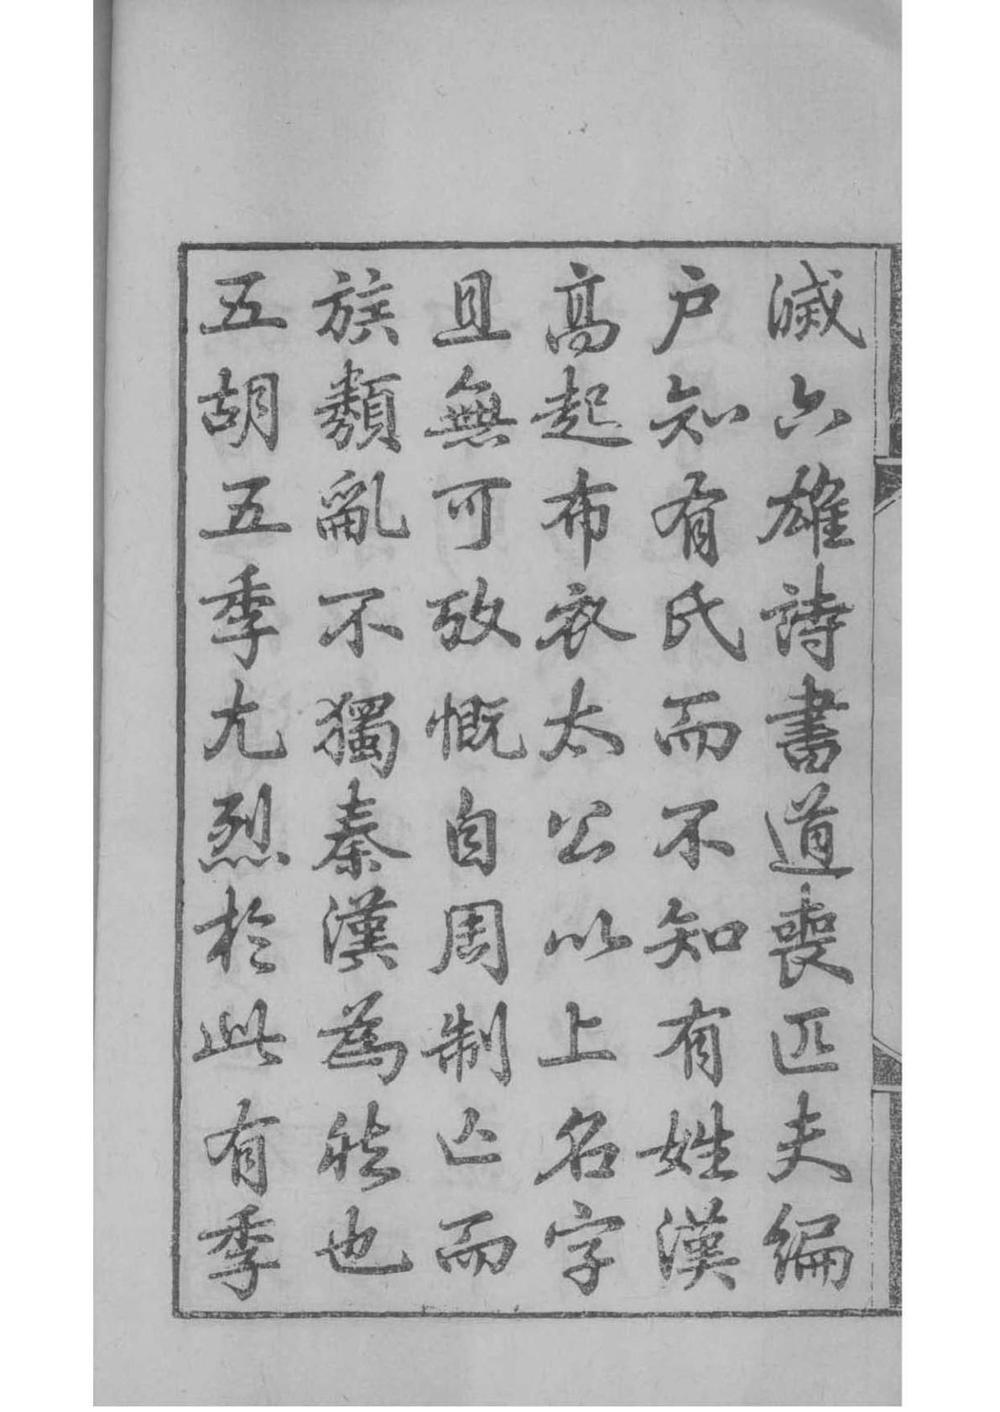 滅六雄詩書道喪匹夫編
戶知有氏而不知有姓漢
高起布衣太公以上名字
且無可攷慨自周制亡而
族類亂不獨秦漢爲然也
五胡五季尤烈於此有季